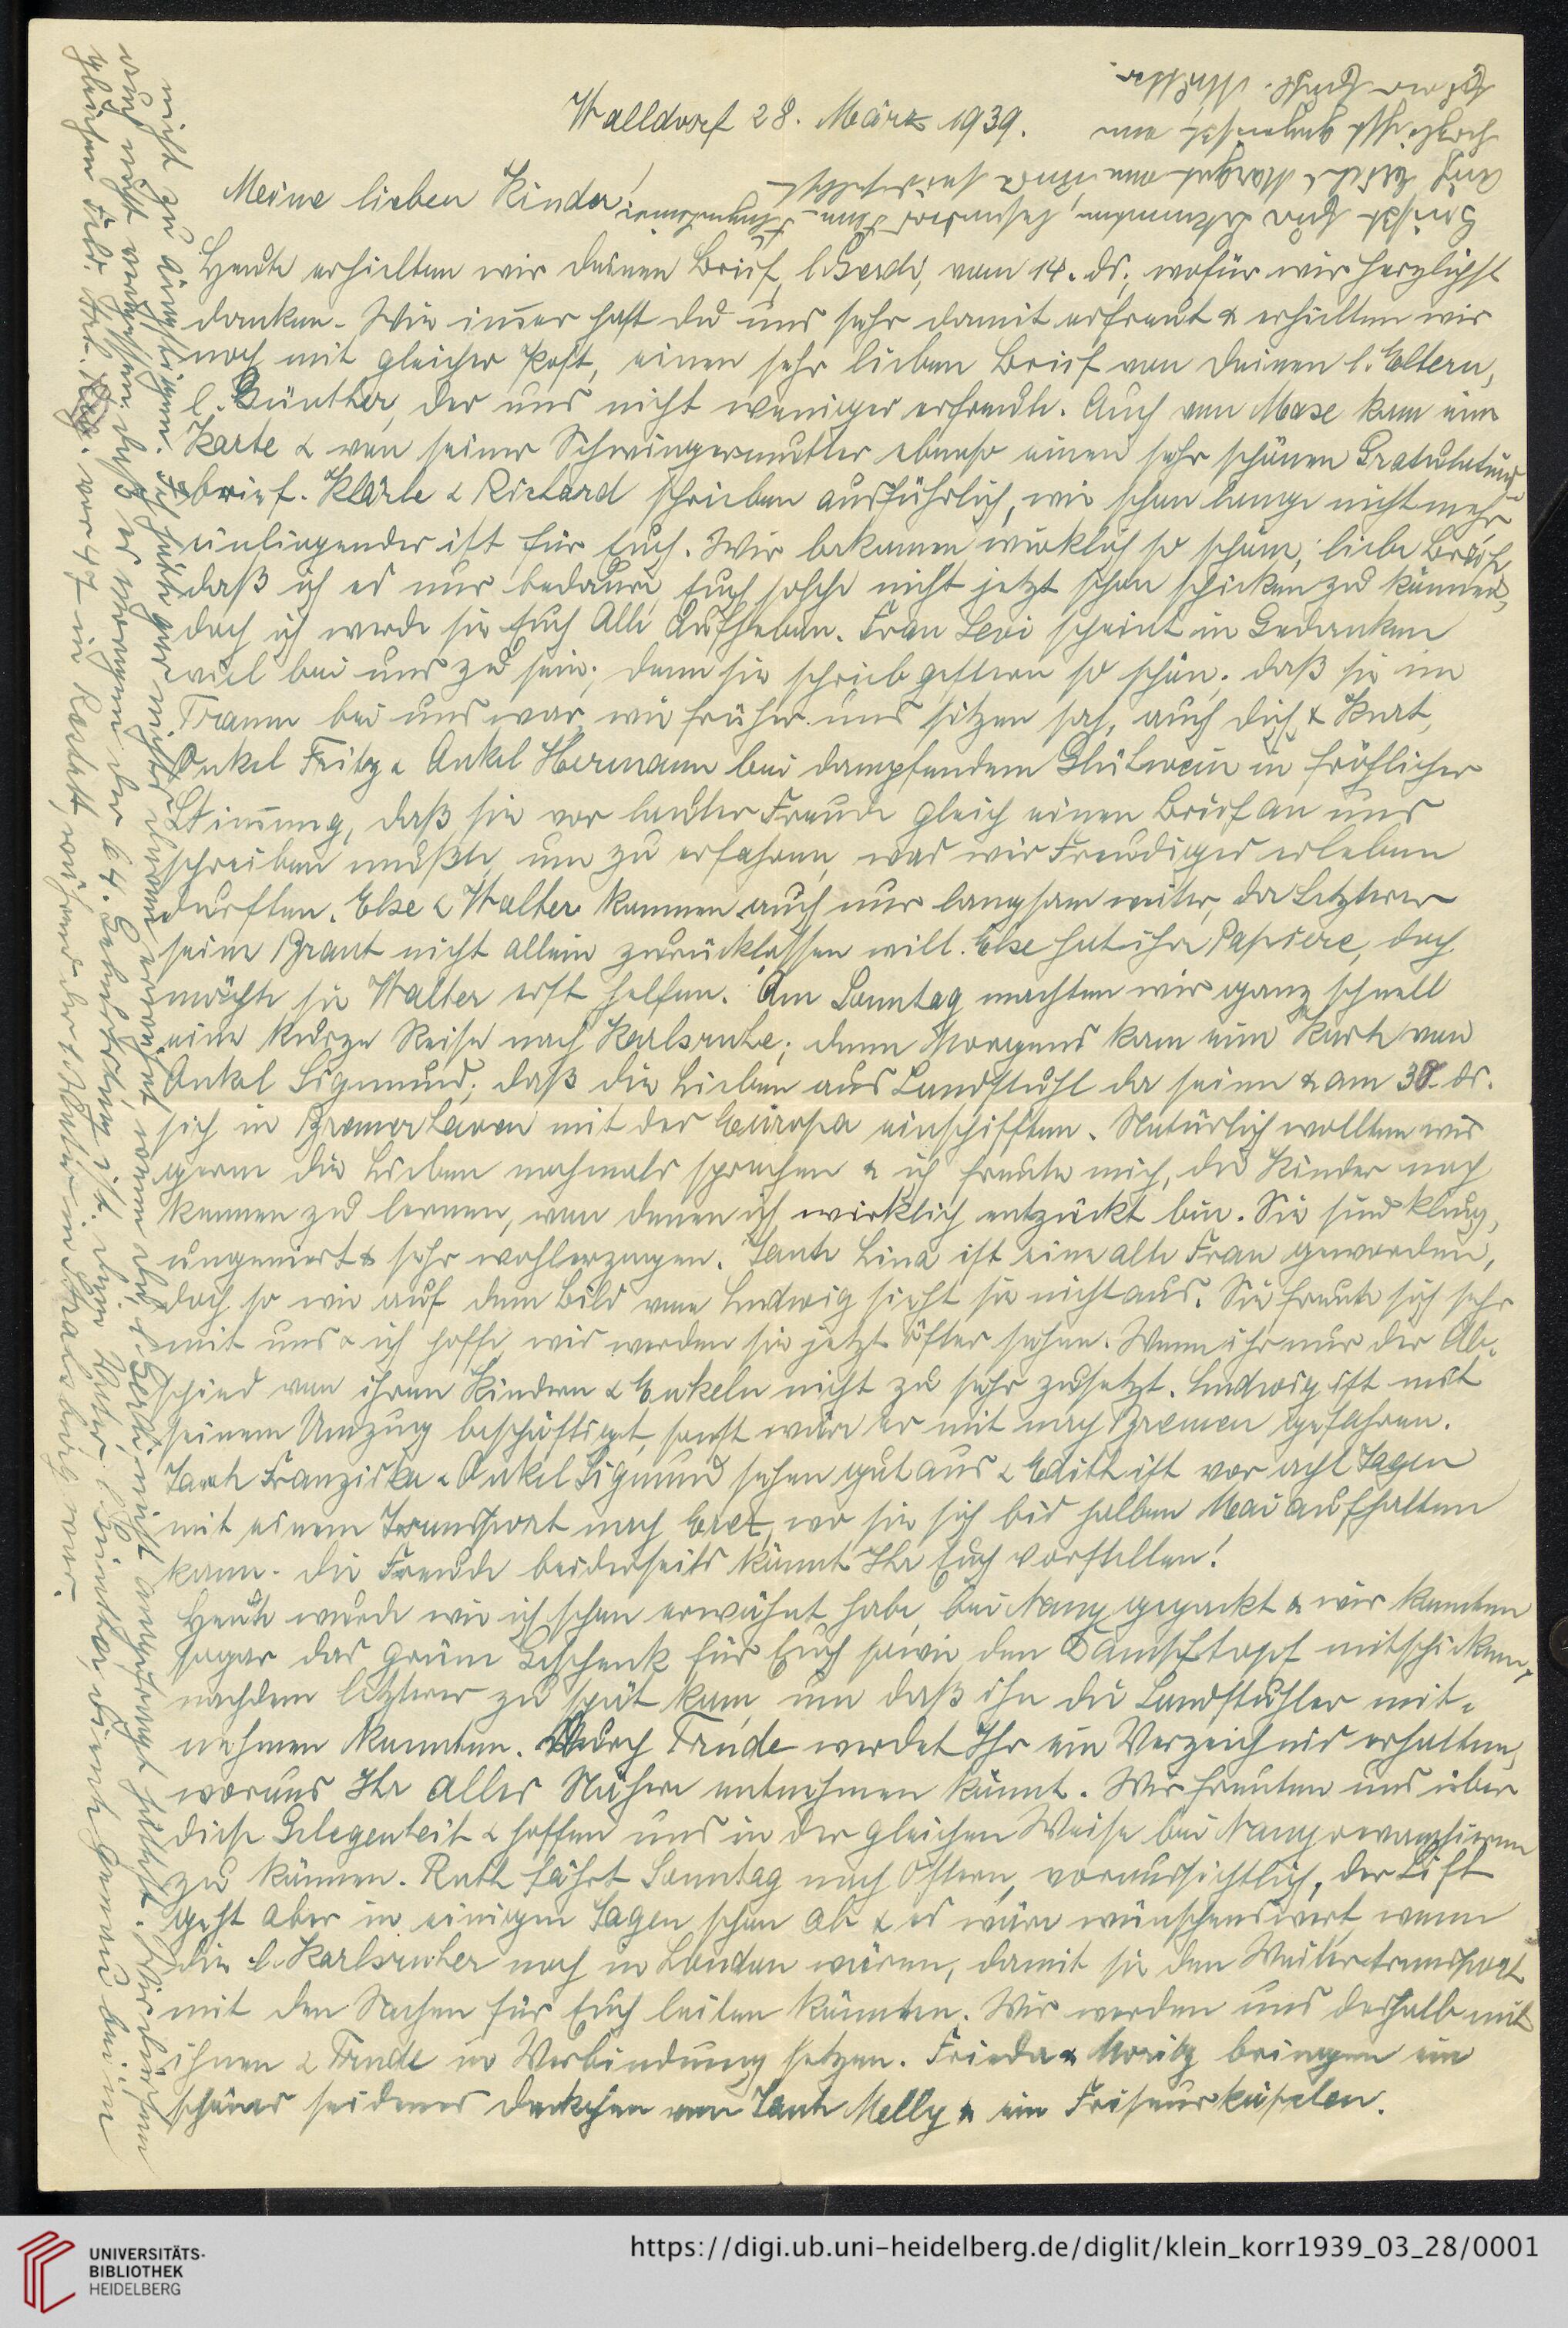 Walldorf 28. März 1939.
Meine lieben Kinder!
Heute erhielten wir deinen Brief, l. Gerdi, vom 14. ds., wofür wir herzlichst
danken. Wie immer hast du uns sehr damit erfreut & erhielten wir
noch mit gleicher Post, einen sehr lieben Brief von deinen l. Eltern,
l. Günther, der uns nicht weniger erfreute. Auch von Mase kam eine
Karte & von seiner Schwiegermutter ebenso einen sehr schönen Gratulations-
brief. Klärle & Richard schrieben ausführlich, wie schon lange nicht mehr
einliegender ist für Euch. Wir bekamen wirklich so schöne, liebe Briefe,
daß ich es nur bedaure, Euch solche nicht jetzt schon schicken zu können,
doch ich werde sie Euch Alle Aufheben. Frau Levi scheint in Gedanken
viel bei uns zu sein; denn sie schrieb gestern so schön, daß sie im
Traum bei uns war, wie früher uns sitzen sah, auch dich & Kurt,
Onkel Fritz & Onkel Hermann bei dampfendem Glühwein in fröhlicher
Stimmung, daß sie vor lauter Freude gleich einen Brief an uns
schreiben mußte, um zu erfahren, was wir Freudiges erleben
durften. Else & Walter kommen auch nur langsam weiter, da Letzterer
seine Braut nicht allein zurücklassen will. Else hat ihre Papiere, doch
möchte sie Walter erst helfen. Am Sonntag machten wir ganz schnell
eine kurze Reise nach Karlsruhe; denn Morgens kam eine Karte von
Onkel Sigmund, daß die Lieben aus Landstuhl da seien & am 30. ds.
sich in Bremerhaven mit der Europa einschifften. Natürlich wollten wir
gerne die Lieben nochmals sprechen & ich freute mich, die Kinder noch
kennen zu lernen, von denen ich wirklich entzückt bin. Sie sind klug,
ungeniert & sehr wohlerzogen. Tante Lina ist eine alte Frau geworden,
doch so wie auf dem Bild von Ludwig sieht sie nicht aus. Sie freute sich sehr
mit uns & ich hoffe, wir werden sie jetzt öfter sehen. Wenn ihr nur der Ab-
schied von ihren Kindern & Enkeln nicht zu sehr zusetzt. Ludwig ist mit
seinem Umzug beschäftigt, sonst wäre er mit nach Bremen gefahren.
Tante Franziska & Onkel Sigmund sehen gut aus & Edith ist vor acht Tagen
mit einem Transport nach Erez, wo sie sich bis halben Mai aufhalten
kann. Die Freude beiderseits könnt Ihr Euch vorstellen!
Heute wurde wie ich schon erwähnt habe, bei Nany gepackt & wir konnten
sogar das grüne Geschenk für Euch sowie den Dampftopf mitschicken,
nachdem letzterer zu spät kam, um daß ihn die Landstuhler mit-
nehmen konnten. Durch Trude werdet Ihr ein Verzeichnis erhalten,
woraus Ihr alles Nähere entnehmen könnt. Wir freuten uns über
diese Gelegenheit & hoffen uns in der gleichen Weise bei Nany revanchieren
zu können. Ruth fährt Sonntag nach Ostern, voraussichtlich, der Lift
geht aber in einigen Tagen schon ab & es wäre wünschenswert, wenn
die l. Karlsruher noch in London wären, damit sie den Weitertransport
mit den Sachen für Euch leiten könnten. Wir werden uns deshalb mit
ihnen & Trude in Verbindung setzen. Frieda & Moritz bringen ein
schönes seidenes Deckchen von Tante Melly & ein
nicht zu ängstigen. Ich hätte gar nichts davon erwähnt, wenn du, l. Gerdi, nicht angefragt hättest. Wir dürfen
auch nicht vergessen, daß es morgen der 64. Geburtstag ist. Dein Vater, l. Günther, diente genau beim
gleichen Feld. Art. Reg. vor 47 in Rastatt,
UNIVERSITÄTS-
BIBLIOTHEK
HEIDELBERG
https://digi.ub.uni-heidelberg.de/diglit/klein_korr1939_03_28/0001